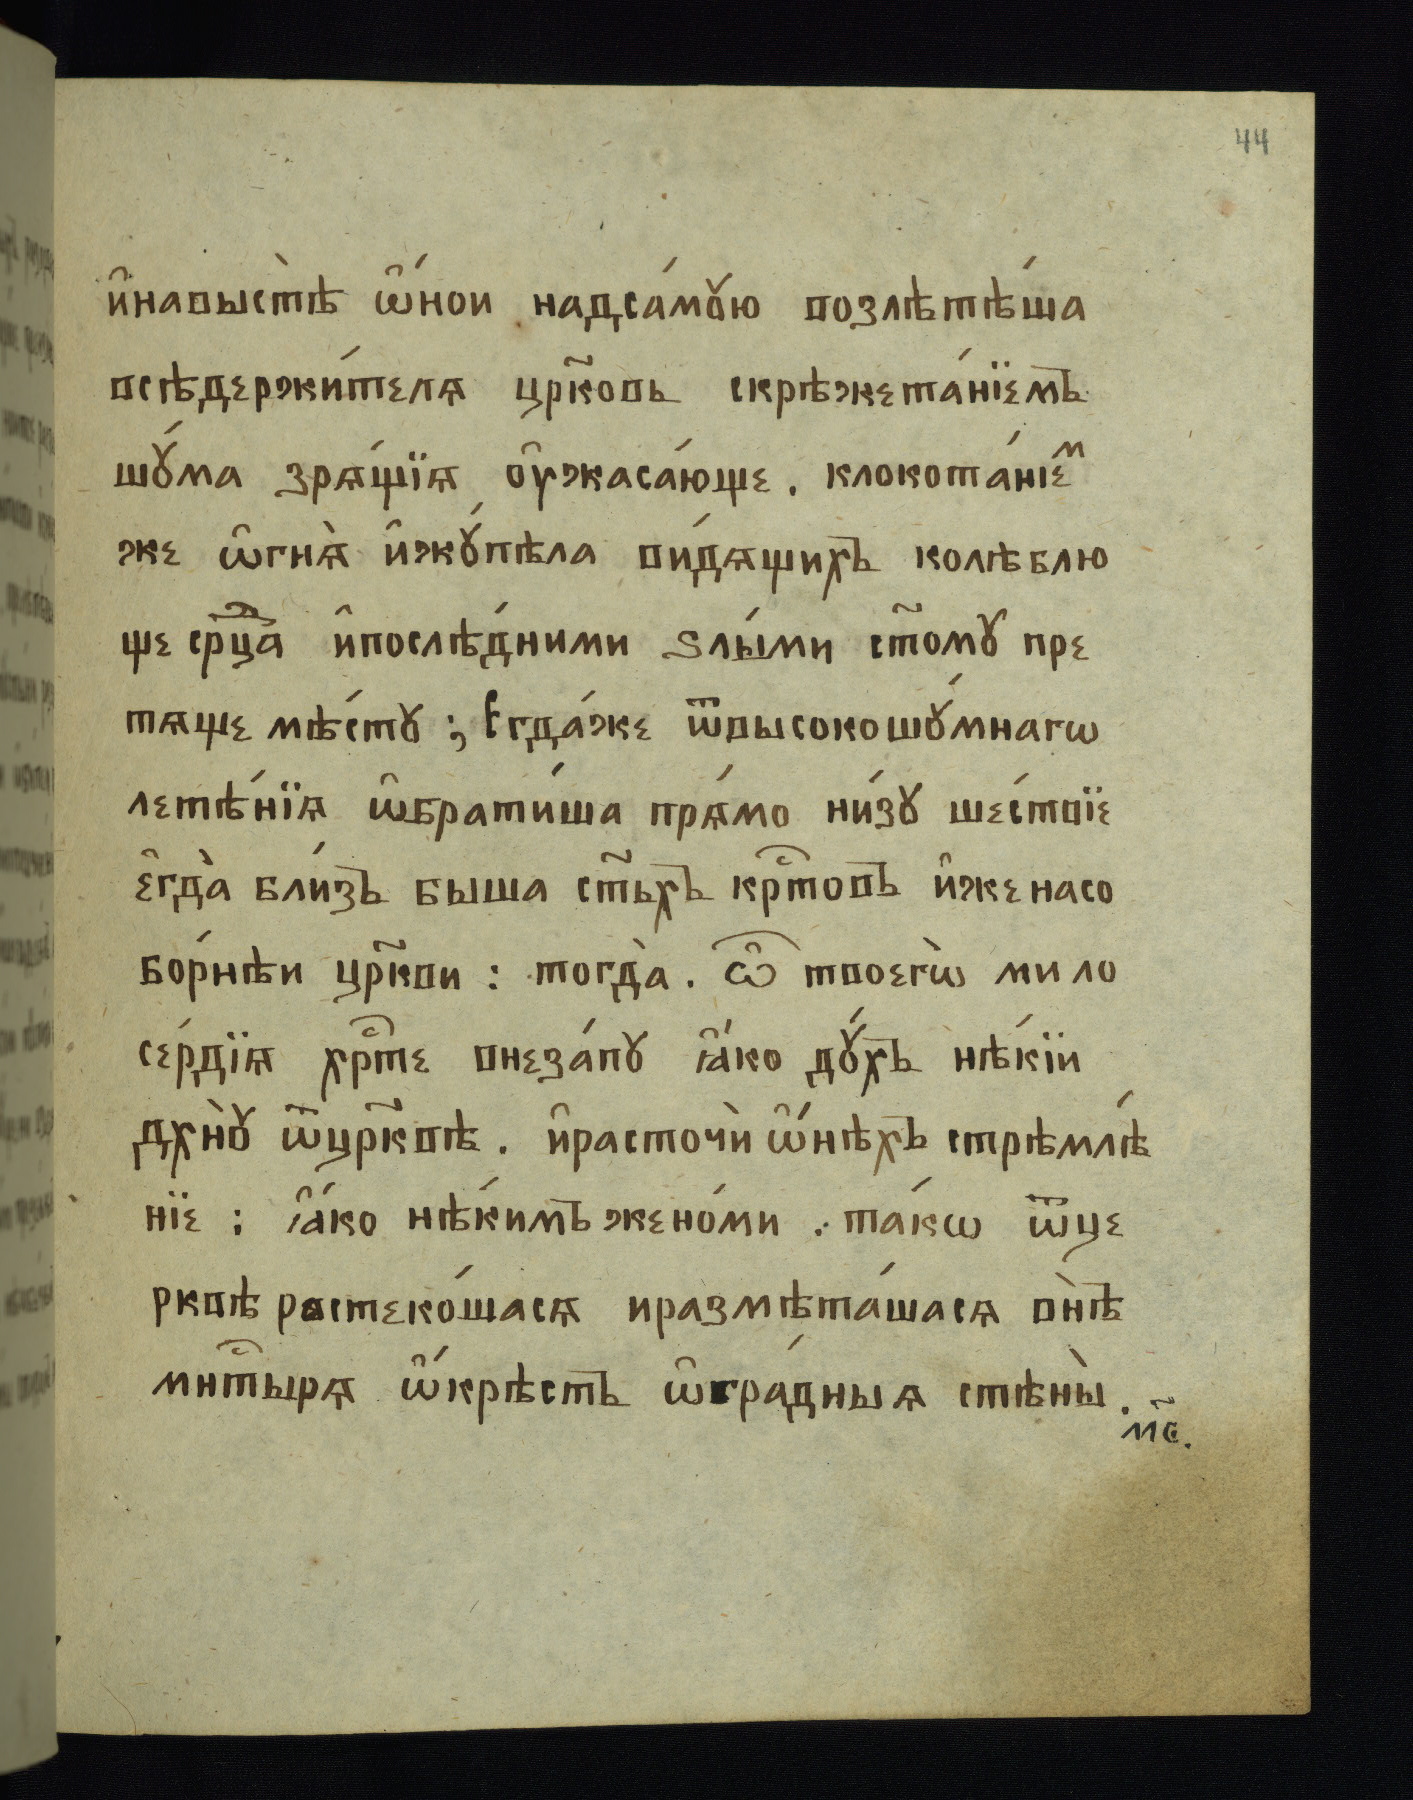 44
и҆навысѣтѣ ѡ҆́нои надса́мꙋю возлѣтѣ́ша
всѣдержи́телѧ цр҃ковь скрѣжета́нїемъ
шꙋ́ма зрѧ́щїѧ ᲂу҆жаса́юще . клокота́нїеⷨ
же ѡ҆гнѧ̀ и҆жꙋ́пѣла ви́дѧщихъ колѣблю
ще срⷣца̀ и҆послѣ́дними ѕлы́ми ст҃омꙋ пре
тѧще мѣ́стꙋ ; Егда́же ѿвысокошꙋ́мнагѡ
летѣ́нїѧ ѡ҆брати́ша прѧ́мо ни́зꙋ ше́ствїе
є҆гда̀ бли́зъ быша ст҃ы́хъ крⷭ҇товъ и҆же насо
бо́рнѣи цр҃кви : тогда̀ . ѿ твоегѡ̀ мило
се́рдїѧ хрⷭ҇те внеза́пꙋ ꙗ҆́ко дꙋ́хъ нѣ́кїи
дхнꙋ̀ ѿцр҃квѣ . и҆расточѝ ѡ҆́нѣхъ стрѣмлѣ́
нїе : ꙗ҆́ко нѣ́кимъ жено́ми . та́кѡ ѿце
рквѣ растеко́шасѧ иразмѣта́шасѧ внѣ̀
мнⷭ҇тырѧ ѡ҆́крѣстъ ѡ҆гра́дныѧ стѣны̀ .
м҃є.